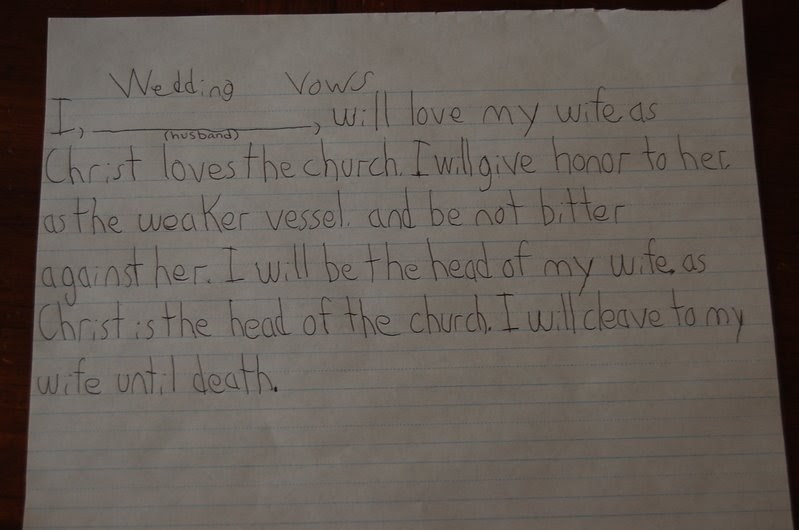 Wedding Vows
I, ____________, will love my wife as
(husband)
Christ loves the church. I will give honor to her
as the weaker vessel. and be not bitter
against her. I will be the head of my wife. as
Christ is the head of the church. I will cleave to my
wife until death.